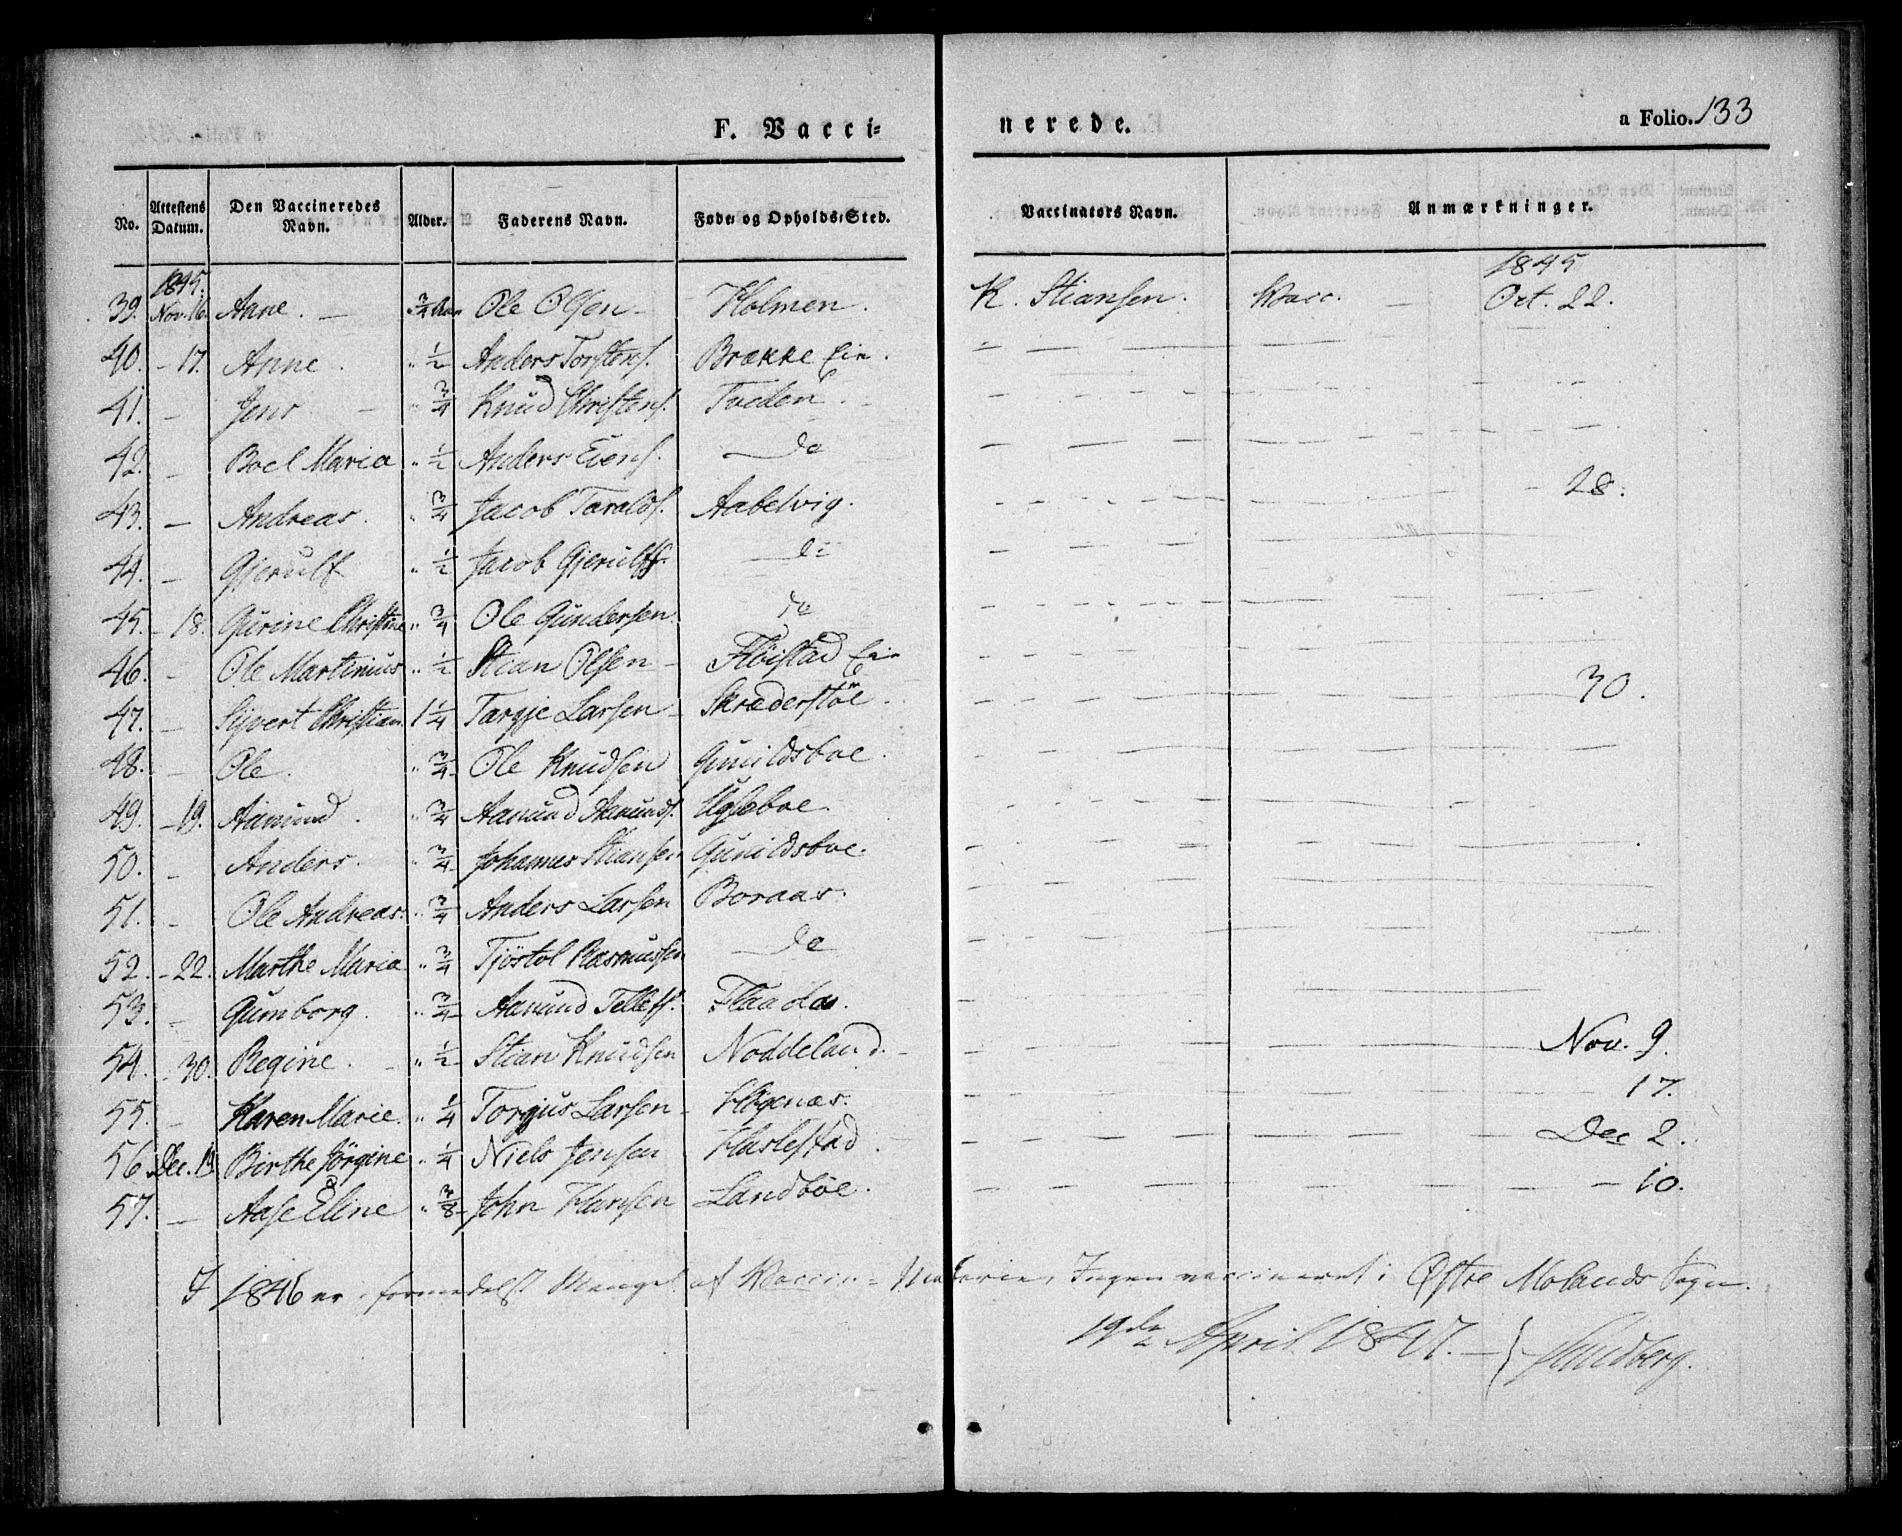 F. Vacci=
nerede.
a Folio. 133
No. Attestens Datum. Den Vaccineredes Navn. Alder. Faderens Navn. Føde= og Opholds=Sted. Vaccinators Navn. Anmærkninger.
1845. 1845
39. Nov. 16. Anne. — " 3/4 Aar Ole Olsen — Holmen. K. Stiansen. Vacc. — Oct. 22.
40. — 17. Anne. " 1/2 Anders Torstens. Brække Eie.
41. — Jens — " 3/4 Knud Christens. Tveden.
42. — Boel Maria " 1/2 Anders Evens. do
43. — Andreas. " 3/4 Jacob Taralds. Aabelvig. — 28.
44. — Gjerulf " 1/2 Jacob Gjerulfs. do
45. — 18. Gurine Christine " 3/4 Ole Gundersen. do
46. — Ole Martinius " 1/2 Stian Olsen — Fløistad Eie
47. — Syvert Christian 1 1/4 Targje Larsen — Skræderstøe. 30.
48. — Ole. " 3/4 Ole Knudsen Gunildsboe.
49. — 19. Aanund. " 3/4 Aanund Aanunds. Ugleboe.
50. — Anders. " 3/4 Johannes Stiansen Gunildsboe.
51. — Ole Andreas. " 3/4 Anders Larsen Boraas.
52. — 22. Marthe Maria " 3/4 Tjöstol Rasmussen do
53. — Gumborg. " 3/4 Aanund Tellefs. Flaadas.
54. — 30. Regine. — " 1/2 Stian Knudsen Noddeland. — Nov. 9.
55. — Karen Marie. " 1/4 Torgius Larsen — Hagenæs. — 17.
56. Dec. Birthe Jörgine " 1/4 Niels Jensen Haslestad. Dec 2.
57. — Aase Eline " 3/8 John Hansen Landböe. — 10.
I 1846 er formedelst Mangel af Vaccin= Materie, Ingen vaccineret i Østre Molands Sogn.
19de April 1847. —